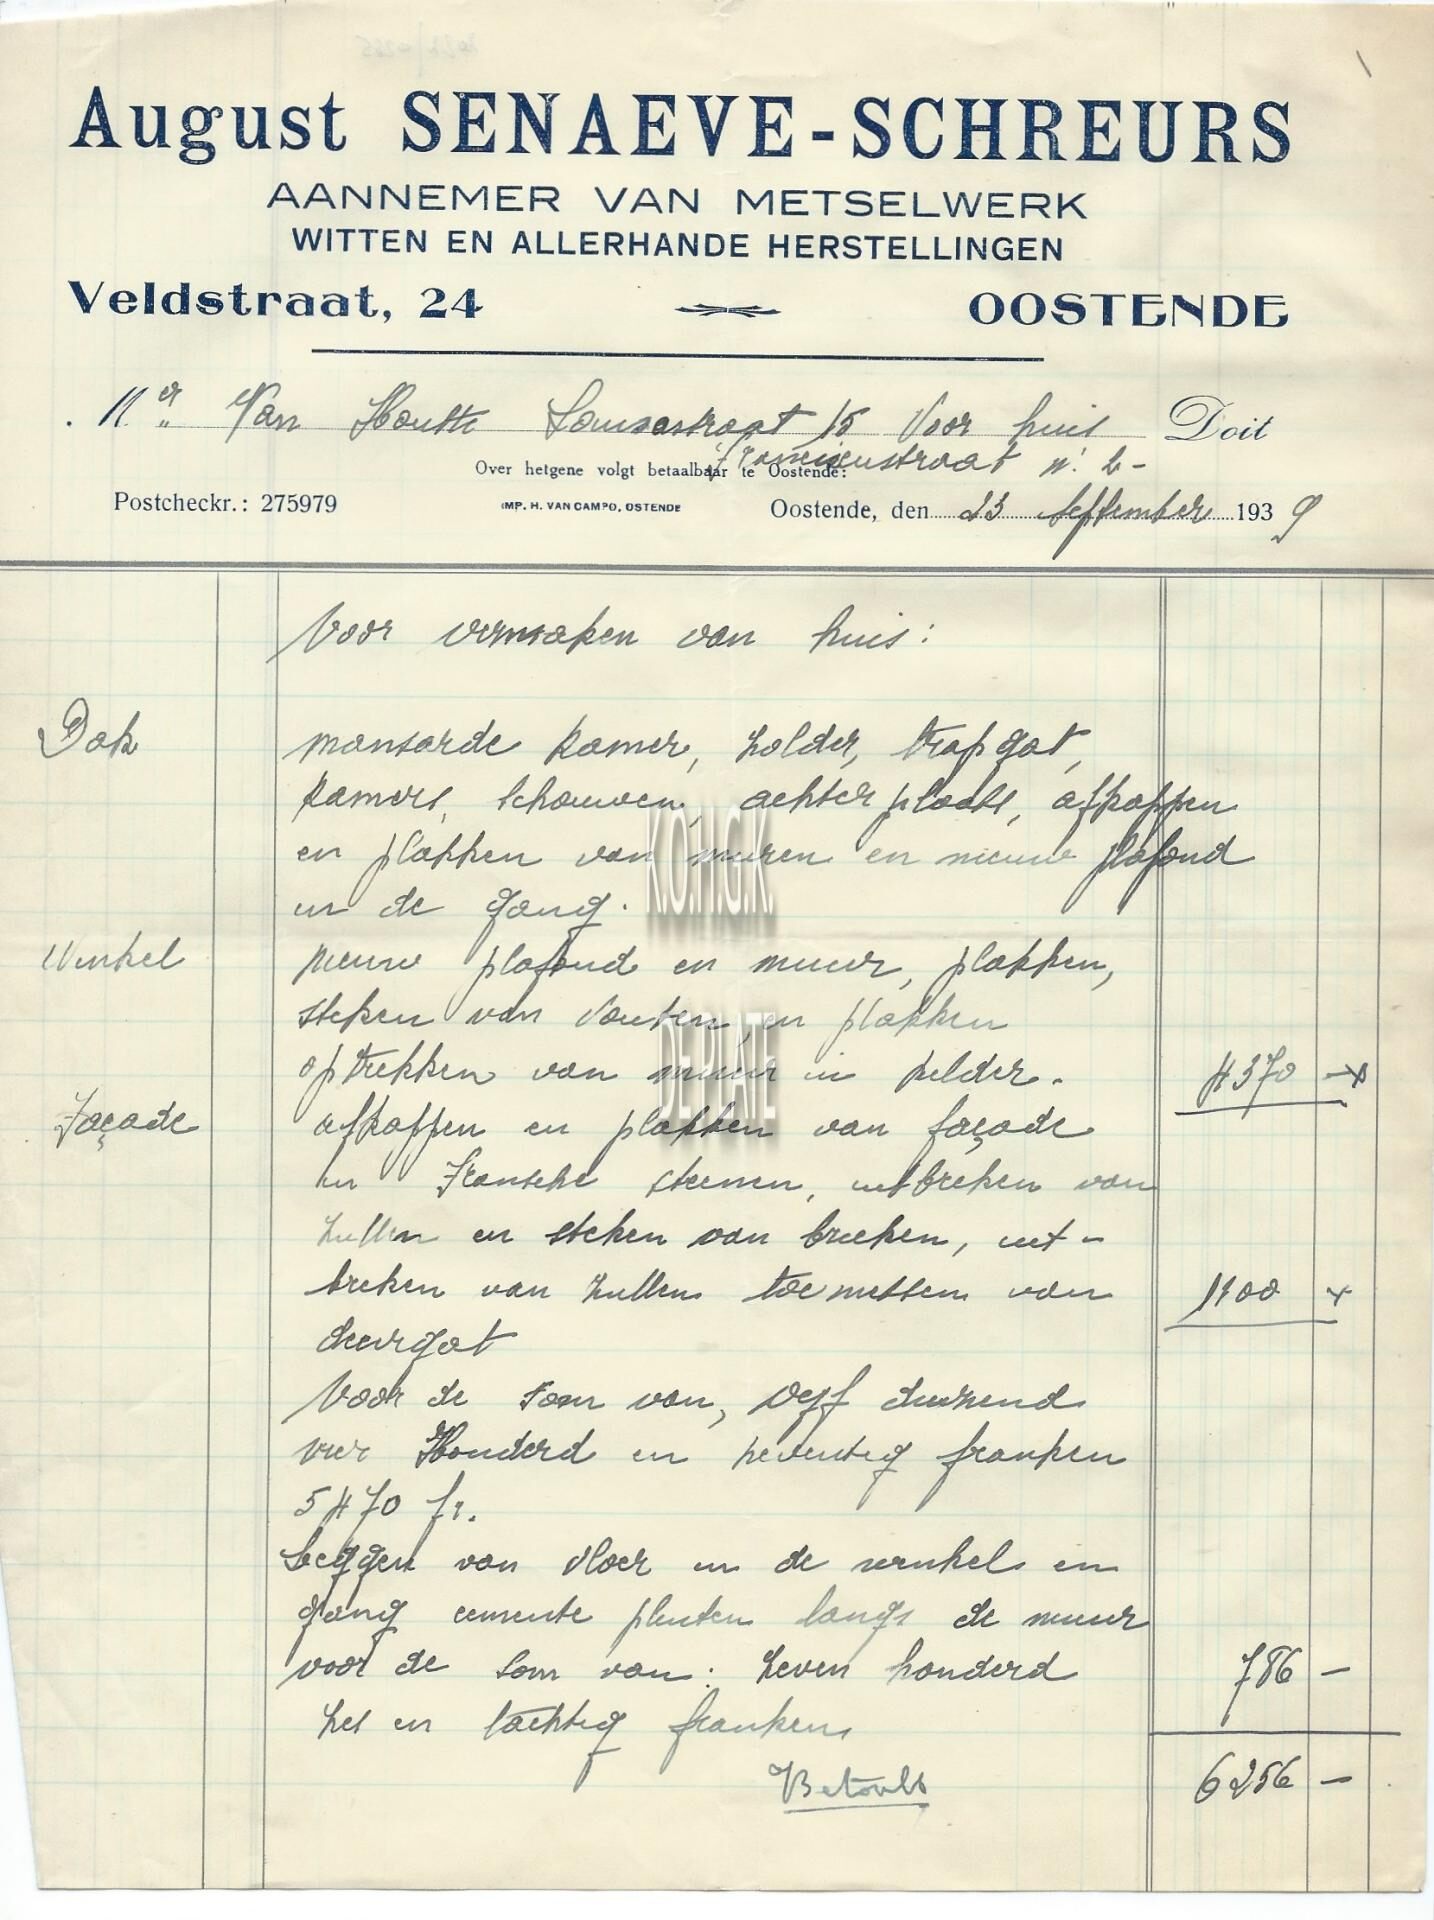 August SENAEVE-SCHREURS
AANNEMER VAN METSELWERK
WITTEN EN ALLERHANDE HERSTELLINGEN
Veldstraat, 24 OOSTENDE
Mer Van Houtte Louisastraat 15 Voor huis Doit
Over hetgene volgt betaalbaar te Oostende: straat n: 2-
Postcheckr.: 275979 IMP. H. VAN CAMPO, OSTENDE Oostende, den 23 September 1939
Voor vermaken van huis:
Dak mansarde kamer, zolder, trapgat,
kamers, schouwen, achter plaats, afkappen
en plakken van muren en nieuw plafond
in de gang.
Winkel nieuw plafond en muur, plakken,
steken van vouten, en plakken
optrekken van muur in kelder. 4370 -
Façade afkappen en plakken van façade
in Fransche steenen, uitbreken van
zullen en steken van brieken, uit-
breken van zullen toemetsen van 1100
deurgat
Voor de som van, Vyf duizend
vier Honderd en zeventig franken
5470 fr.
Leggen van vloer in de winkel en
gang cemente plinten langs de muur
voor de som van: zeven honderd 786 -
zes en tachtig franken
Betaald 6256 -
K.O.H.G.K.
DE PLATE